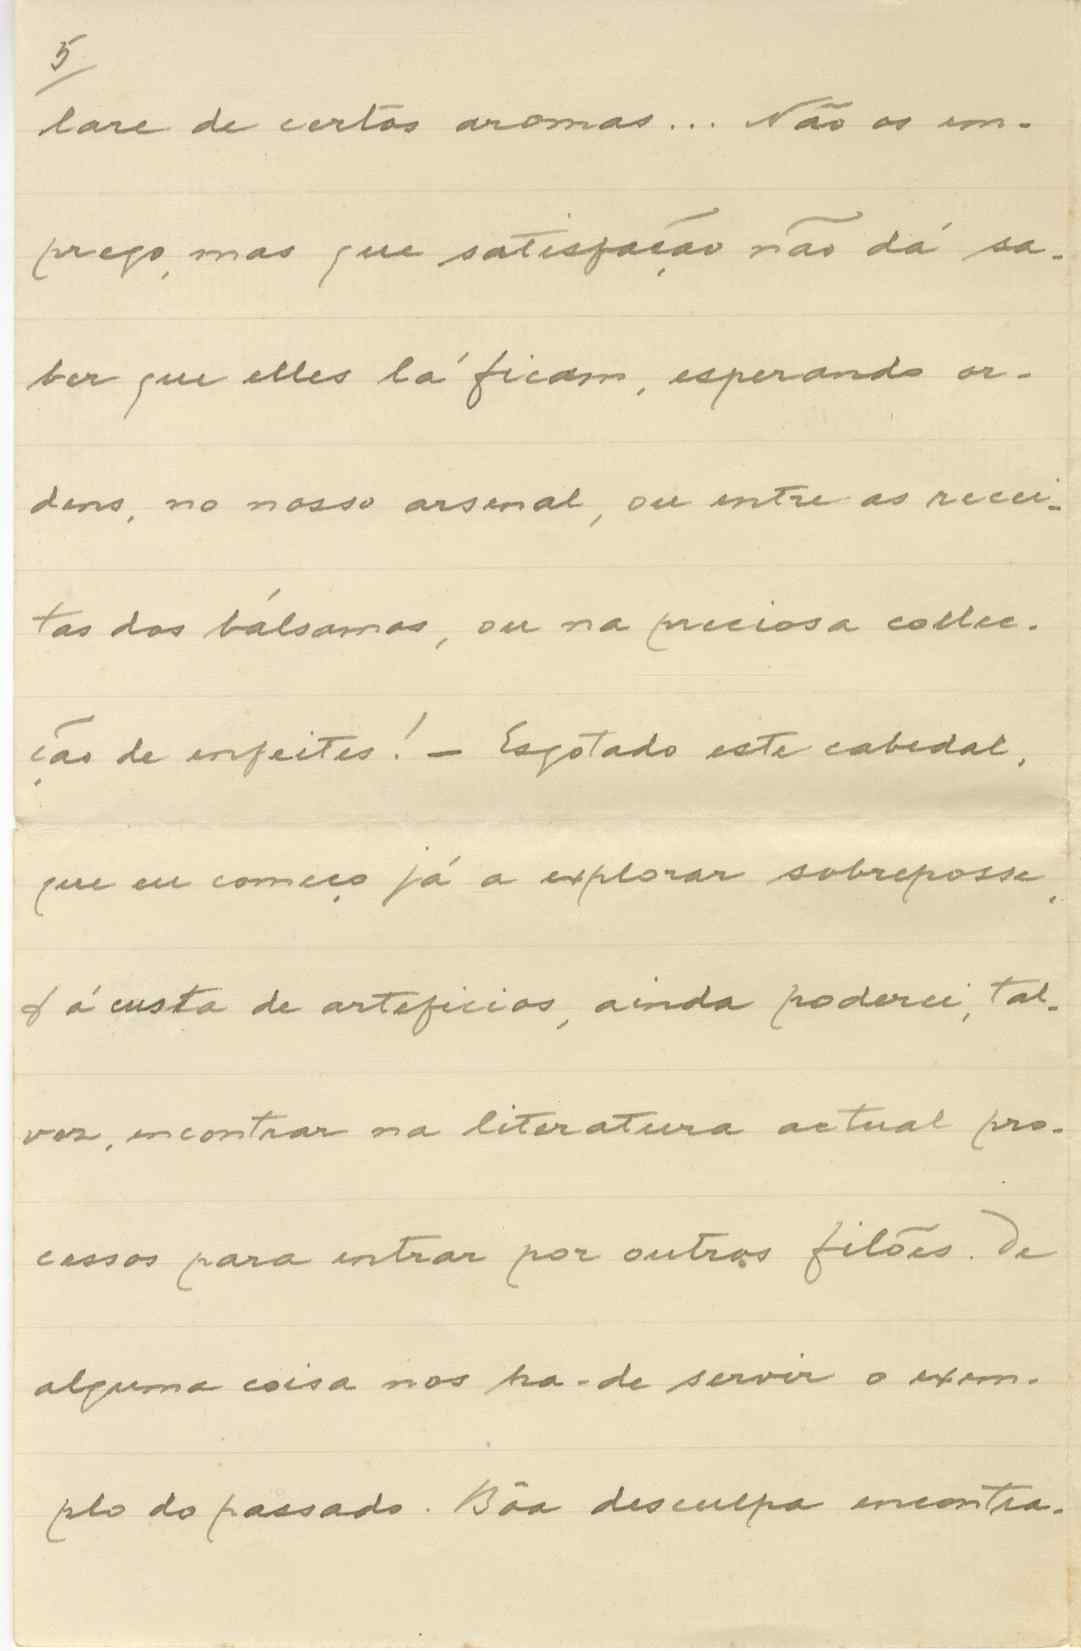 5
lare de certos aromas... Não os em-
prego, mas que satisfação não dá sa-
ber que elles lá ficam, esperando or-
dens, no nosso arsenal, ou entre as recei-
tas dos bálsamos, ou na preciosa collec-
ção de enfeites! — Esgotado este cabedal,
que eu começo já a explorar sobreposse,
& á custa de arteficios, ainda poderei, tal-
vez, encontrar na literatura actual pro-
cessos para entrar por outros filões. De
alguma coisa nos ha-de servir o exem-
plo do passado. Bôa desculpa encontra-